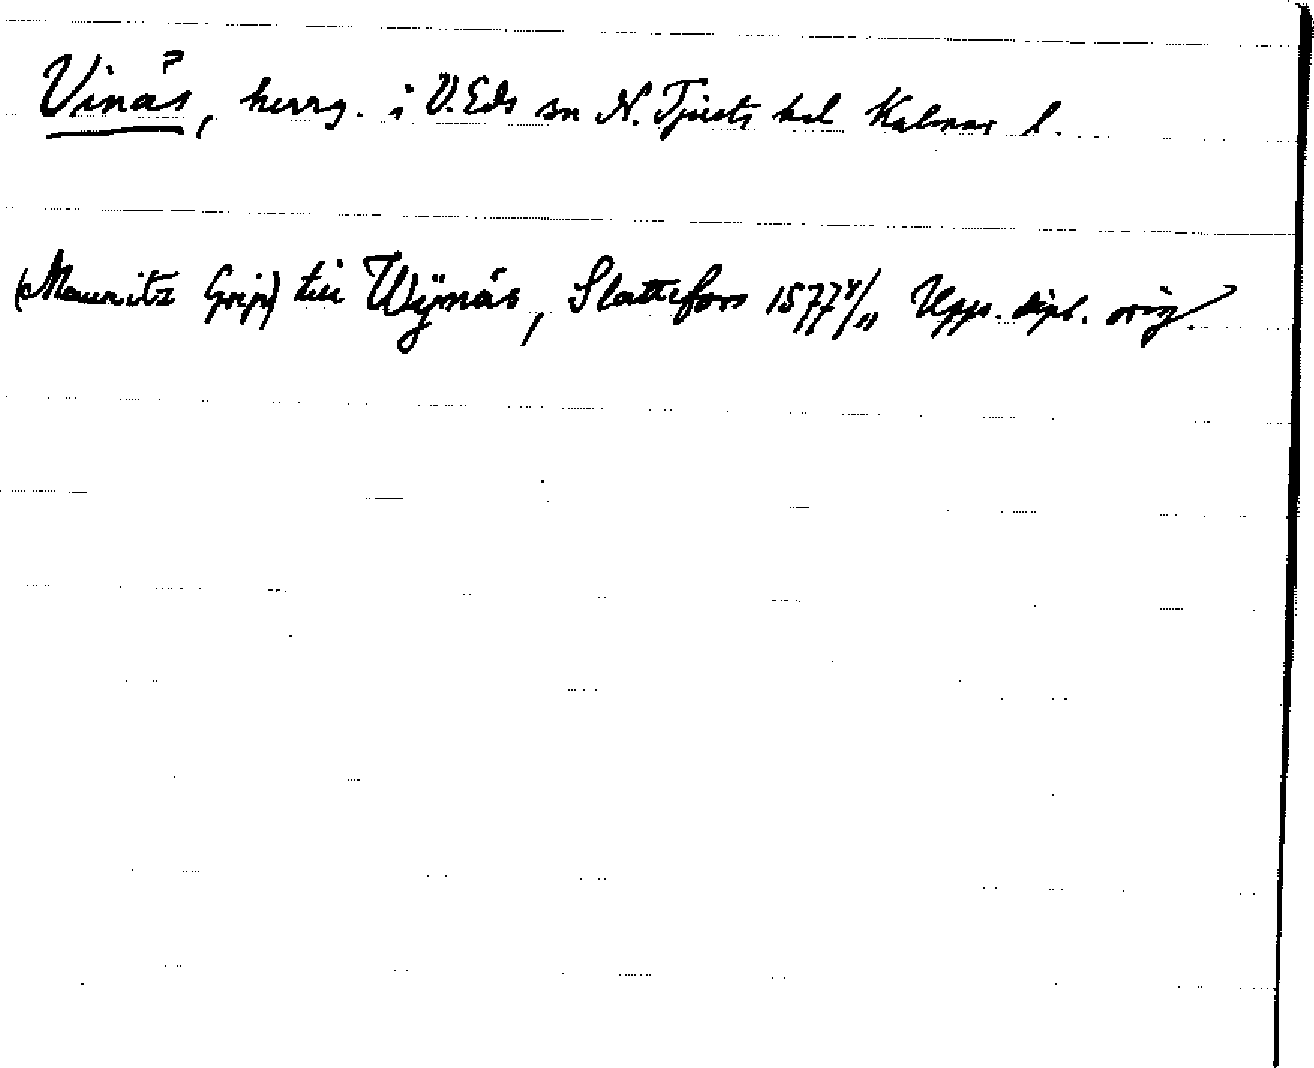 Vinäs, herrg. i V. Eds sn N. Tjusts hd Kalmar l.
(Mauritz Grip) till Wijnäs, Slattefors 1577 4/11 Upps. dipl. orig.